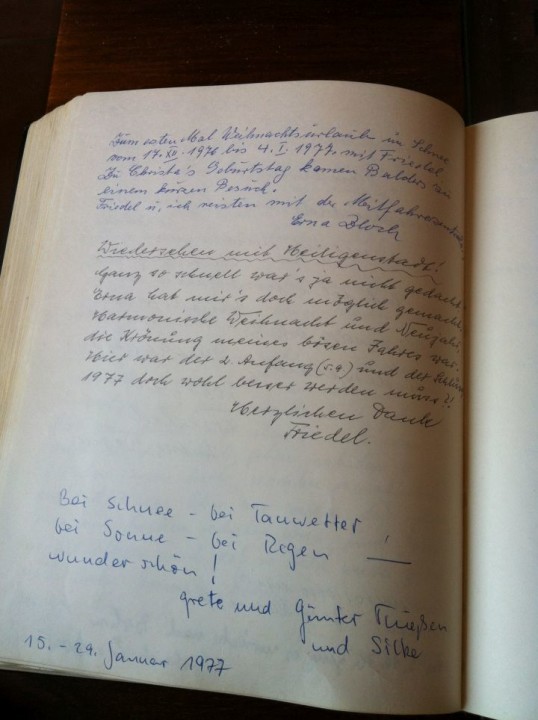 Zum ersten Mal Weihnachtsurlaub im Schnee
vom 17. XII. 1976 bis 4. I. 1977 mit Friedel.
Zu Christa's Geburtstag kamen Balders zu
einem kurzen Besuch.
Friedel u. ich reisten mit der
Erna Bloch
Wiedersehen mit Heiligenstadt!
Ganz so schnell war's ja nicht gedacht
Erna hat mir's doch möglich gemacht
Harmonische Weihnacht und Neujahr
die Krönung meines bösen Jahres war.
Hier war der 2. Anfang und der
1977 doch wohl besser werden muss?!
Herzlichen Dank
Friedel.
Bei Schnee - bei Tauwetter
bei Sonne - bei Regen —
wunderschön!
Grete und Günter
und Silke
15. - 29. Januar 1977